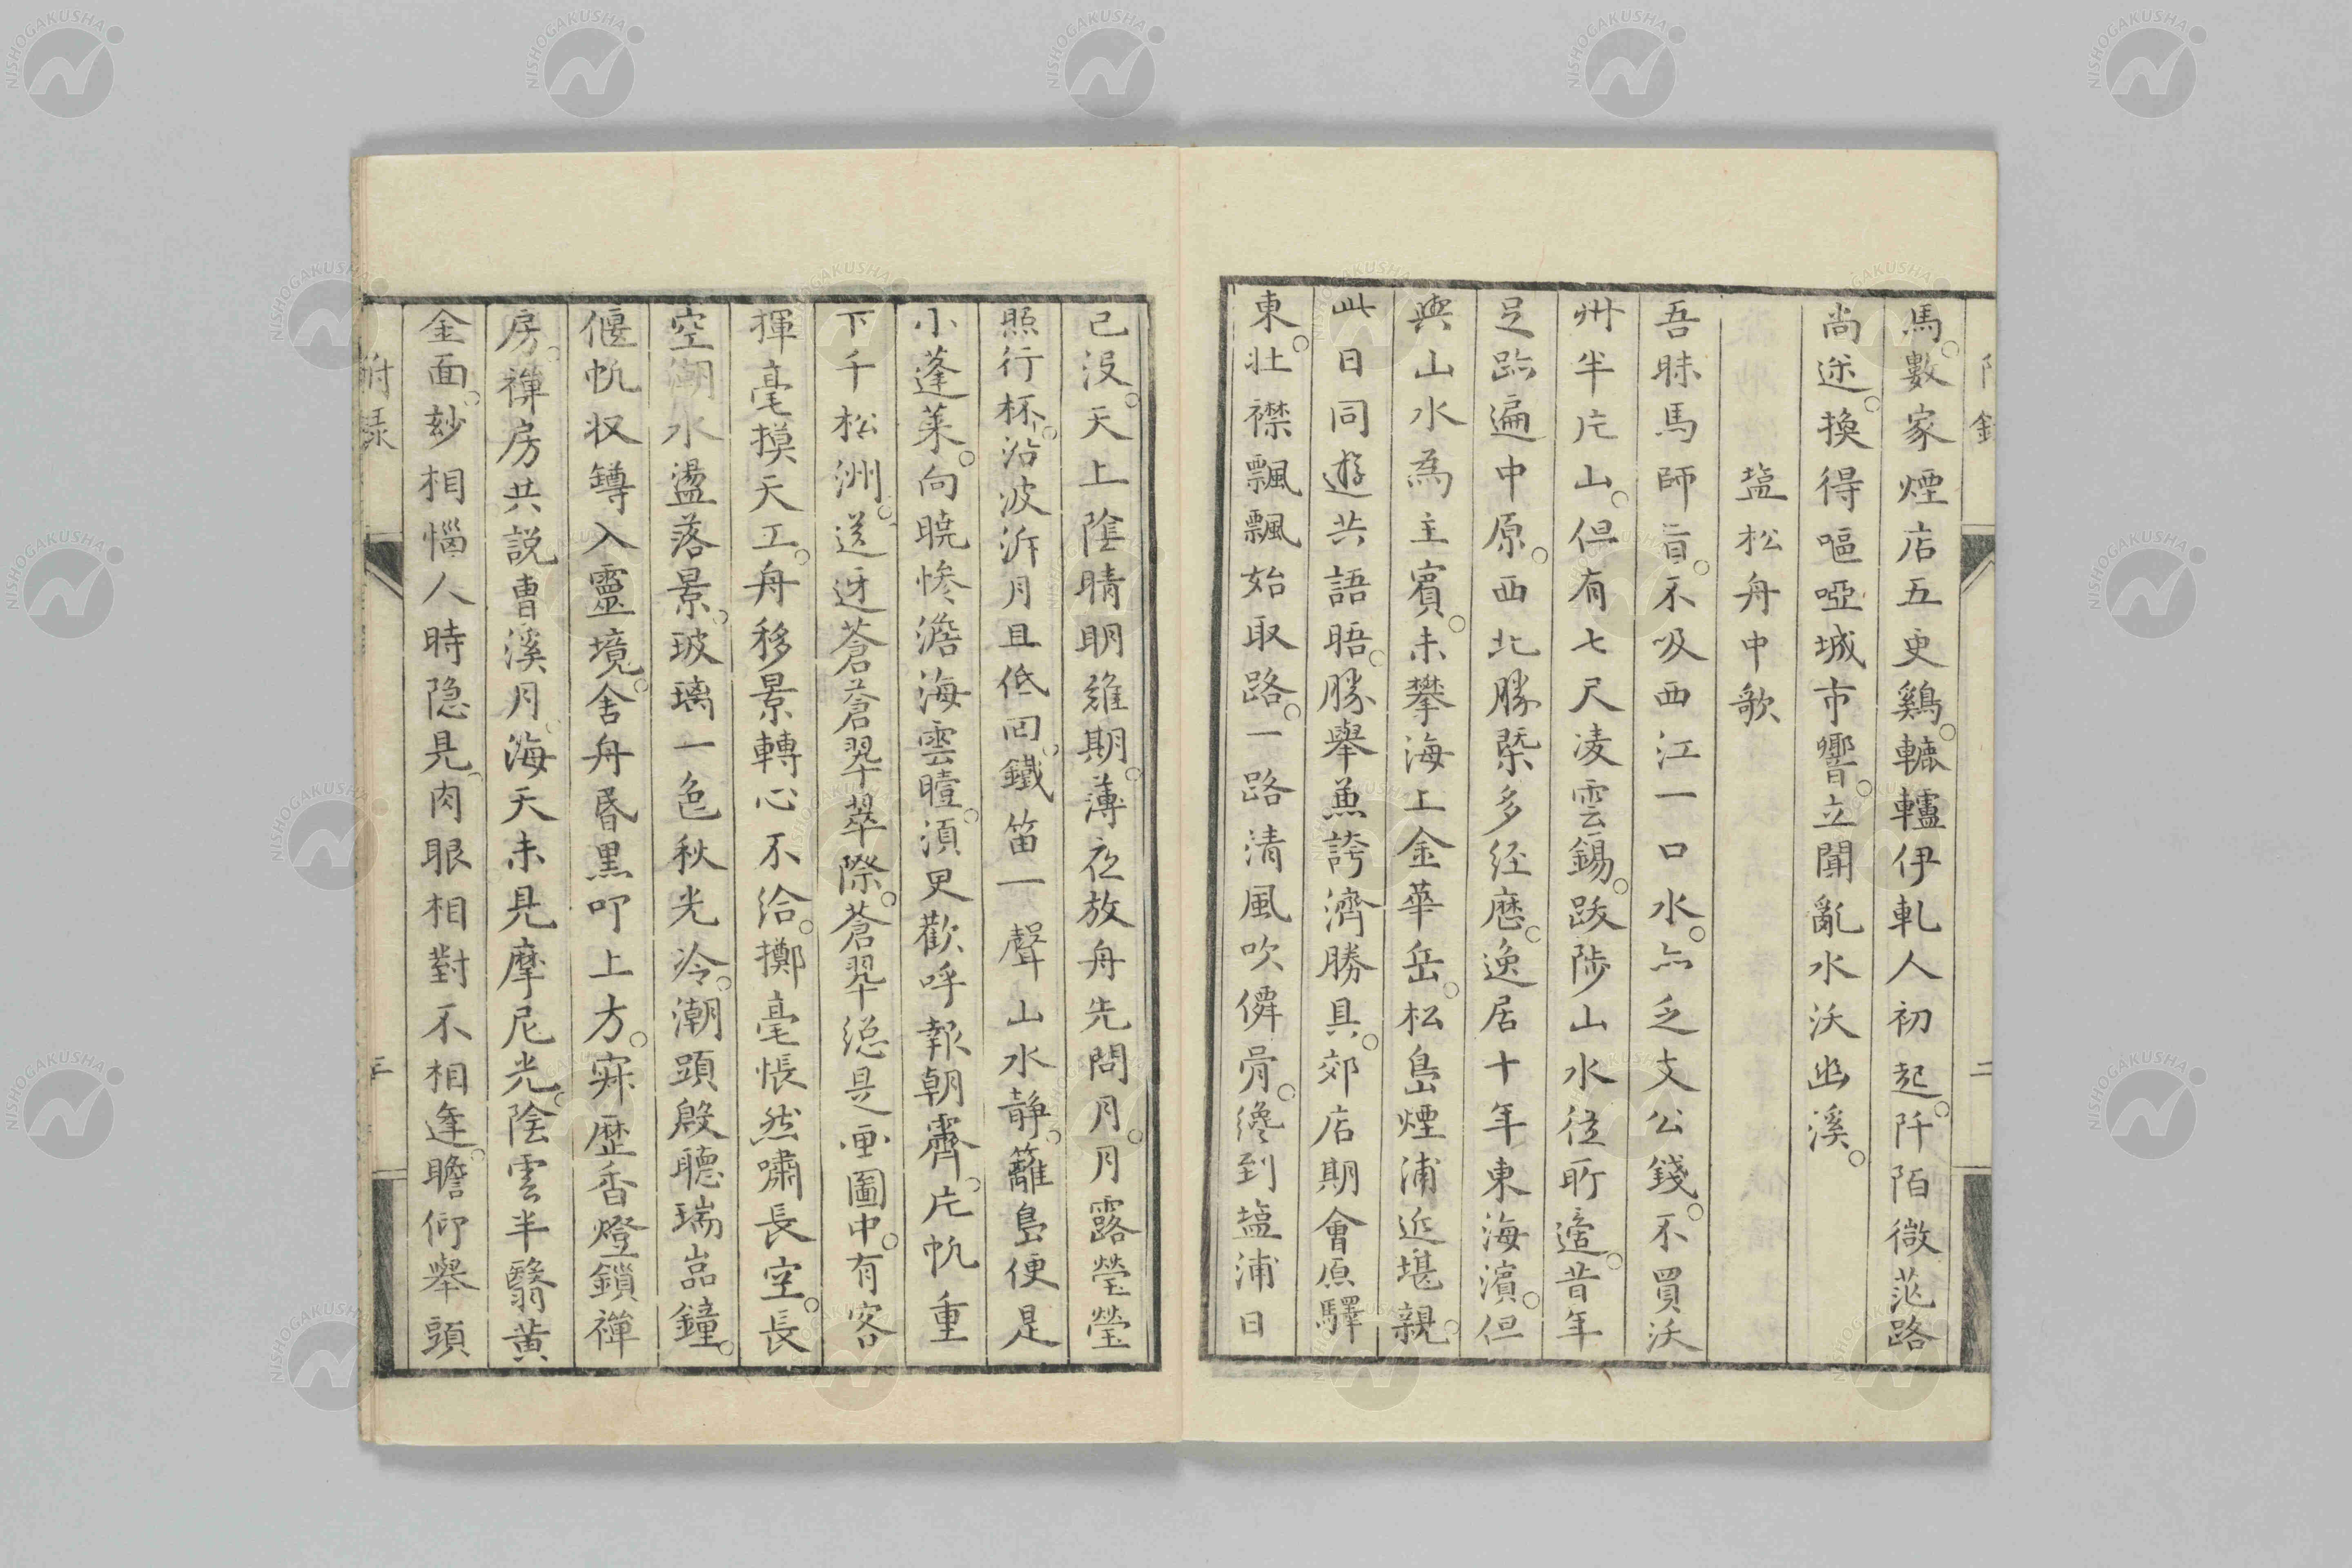 馬。數家煙店五更鷄。轆轤伊軋人初起。阡陌微茫路
尚迷。換得嘔啞城市響。立聞亂水沃幽溪。
塩松舟中歌
吾昧馬師旨。不吸西江一口水。亦乏支公錢。不買沃
州半片山。但有七尺凌雲錫。跋陟山水從所適。昔年
足跡遍中原。西北勝槩多経歴。逸居十年東海濱。但
與山水為主賓。未攀海上金華岳。松島煙浦近堪親。
此日同遊共語晤。勝舉兼誇濟勝具。郊店期會原驛
東。壮襟飄飄始取路。一路清風吹僊骨。纔到塩浦日
已没。天上陰晴明難期。薄夜放舟先問月。月露瑩瑩
照行杯。沿波泝月且低回。鐵笛一聲山水静。籬島便是
小蓬莱。向暁惨澹海雲曀。須臾歡呼報朝霽。片帆重
下千松洲。送迓蒼蒼翠翠際。蒼翠総是画圖中。有客
揮毫摸天工。舟移景轉心不洽。擲毫悵然嘯長空。長
空潮水盪落景。玻璃一色秋光冷。潮頭殷聴瑞嵓鐘。
偃帆収罇入靈境。舍舟昏黒叩上方。寂歴香燈鎖禅
房。禅房共説曹溪月。海天未見摩尼光。陰雲半翳黄
金面。玅相惱人時隠見。肉眼相對不相逢。瞻仰舉頭
附録
三
二
NISHOGAKUSHA